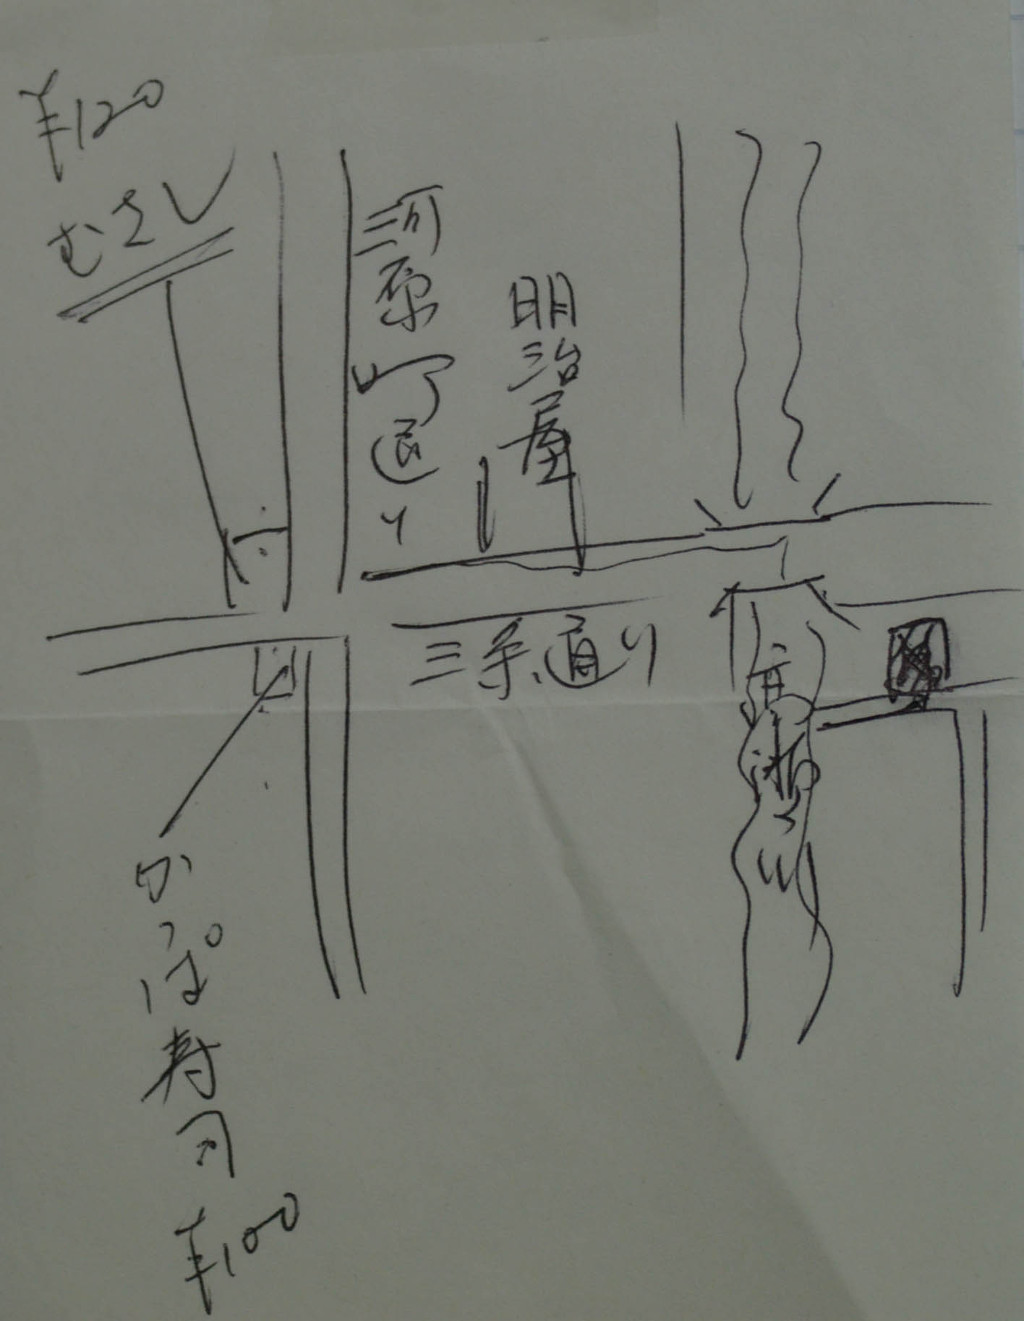 ¥120
むさし
河原町通り
明治屋
三条通り
かっぱ寿司
¥100